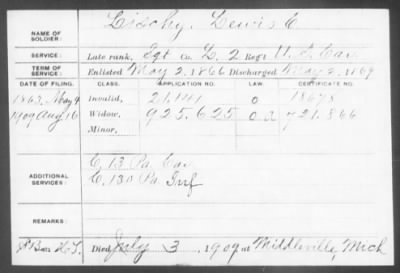 NAME OF SOLDIER: Lischy, Lewis C
SERVICE: Late rank, Sgt Co. L, 2 Regt U.S. Cav
TERM OF SERVICE: Enlisted May 2, 1866 Discharged May 2, 1869
DATE OF FILING. CLASS. APPLICATION NO. LAW. CERTIFICATE NO.
1863, May 4 Invalid, 21.141 o 18678
1909 Aug 16 Widow, 925.625 o a 721.866
Minor,
ADDITIONAL SERVICES: C, 13 Pa Cav
C, 130 Pa Inf
REMARKS:
Died July 3, 1909 at Middleville, Mich